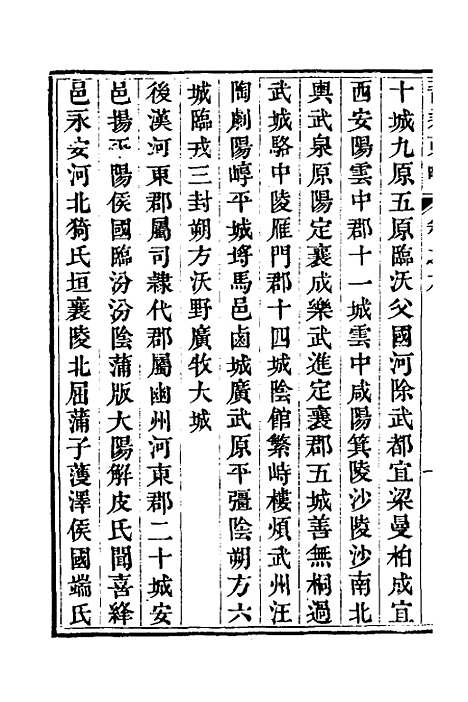 十城九原五原臨沃父國河除武都宜梁曼柏成宜
西安陽雲中郡十一城雲中咸陽箕陵沙陵沙南北
輿武泉原陽定襄成樂武進定襄郡五城善無桐過
武城駱中陵雁門郡十四城陰館繁畤樓煩武州汪
陶劇陽崞平城埒馬邑鹵城廣武原平彊陰朔方六
城臨戎三封朔方沃野廣牧大城
後漢河東郡屬司隸代郡屬幽州河東郡二十城安
邑揚平陽侯國臨汾汾陰蒲版大陽解皮氏聞喜絳
邑永安河北猗氏垣襄陵北屈蒲子濩澤侯國端氏